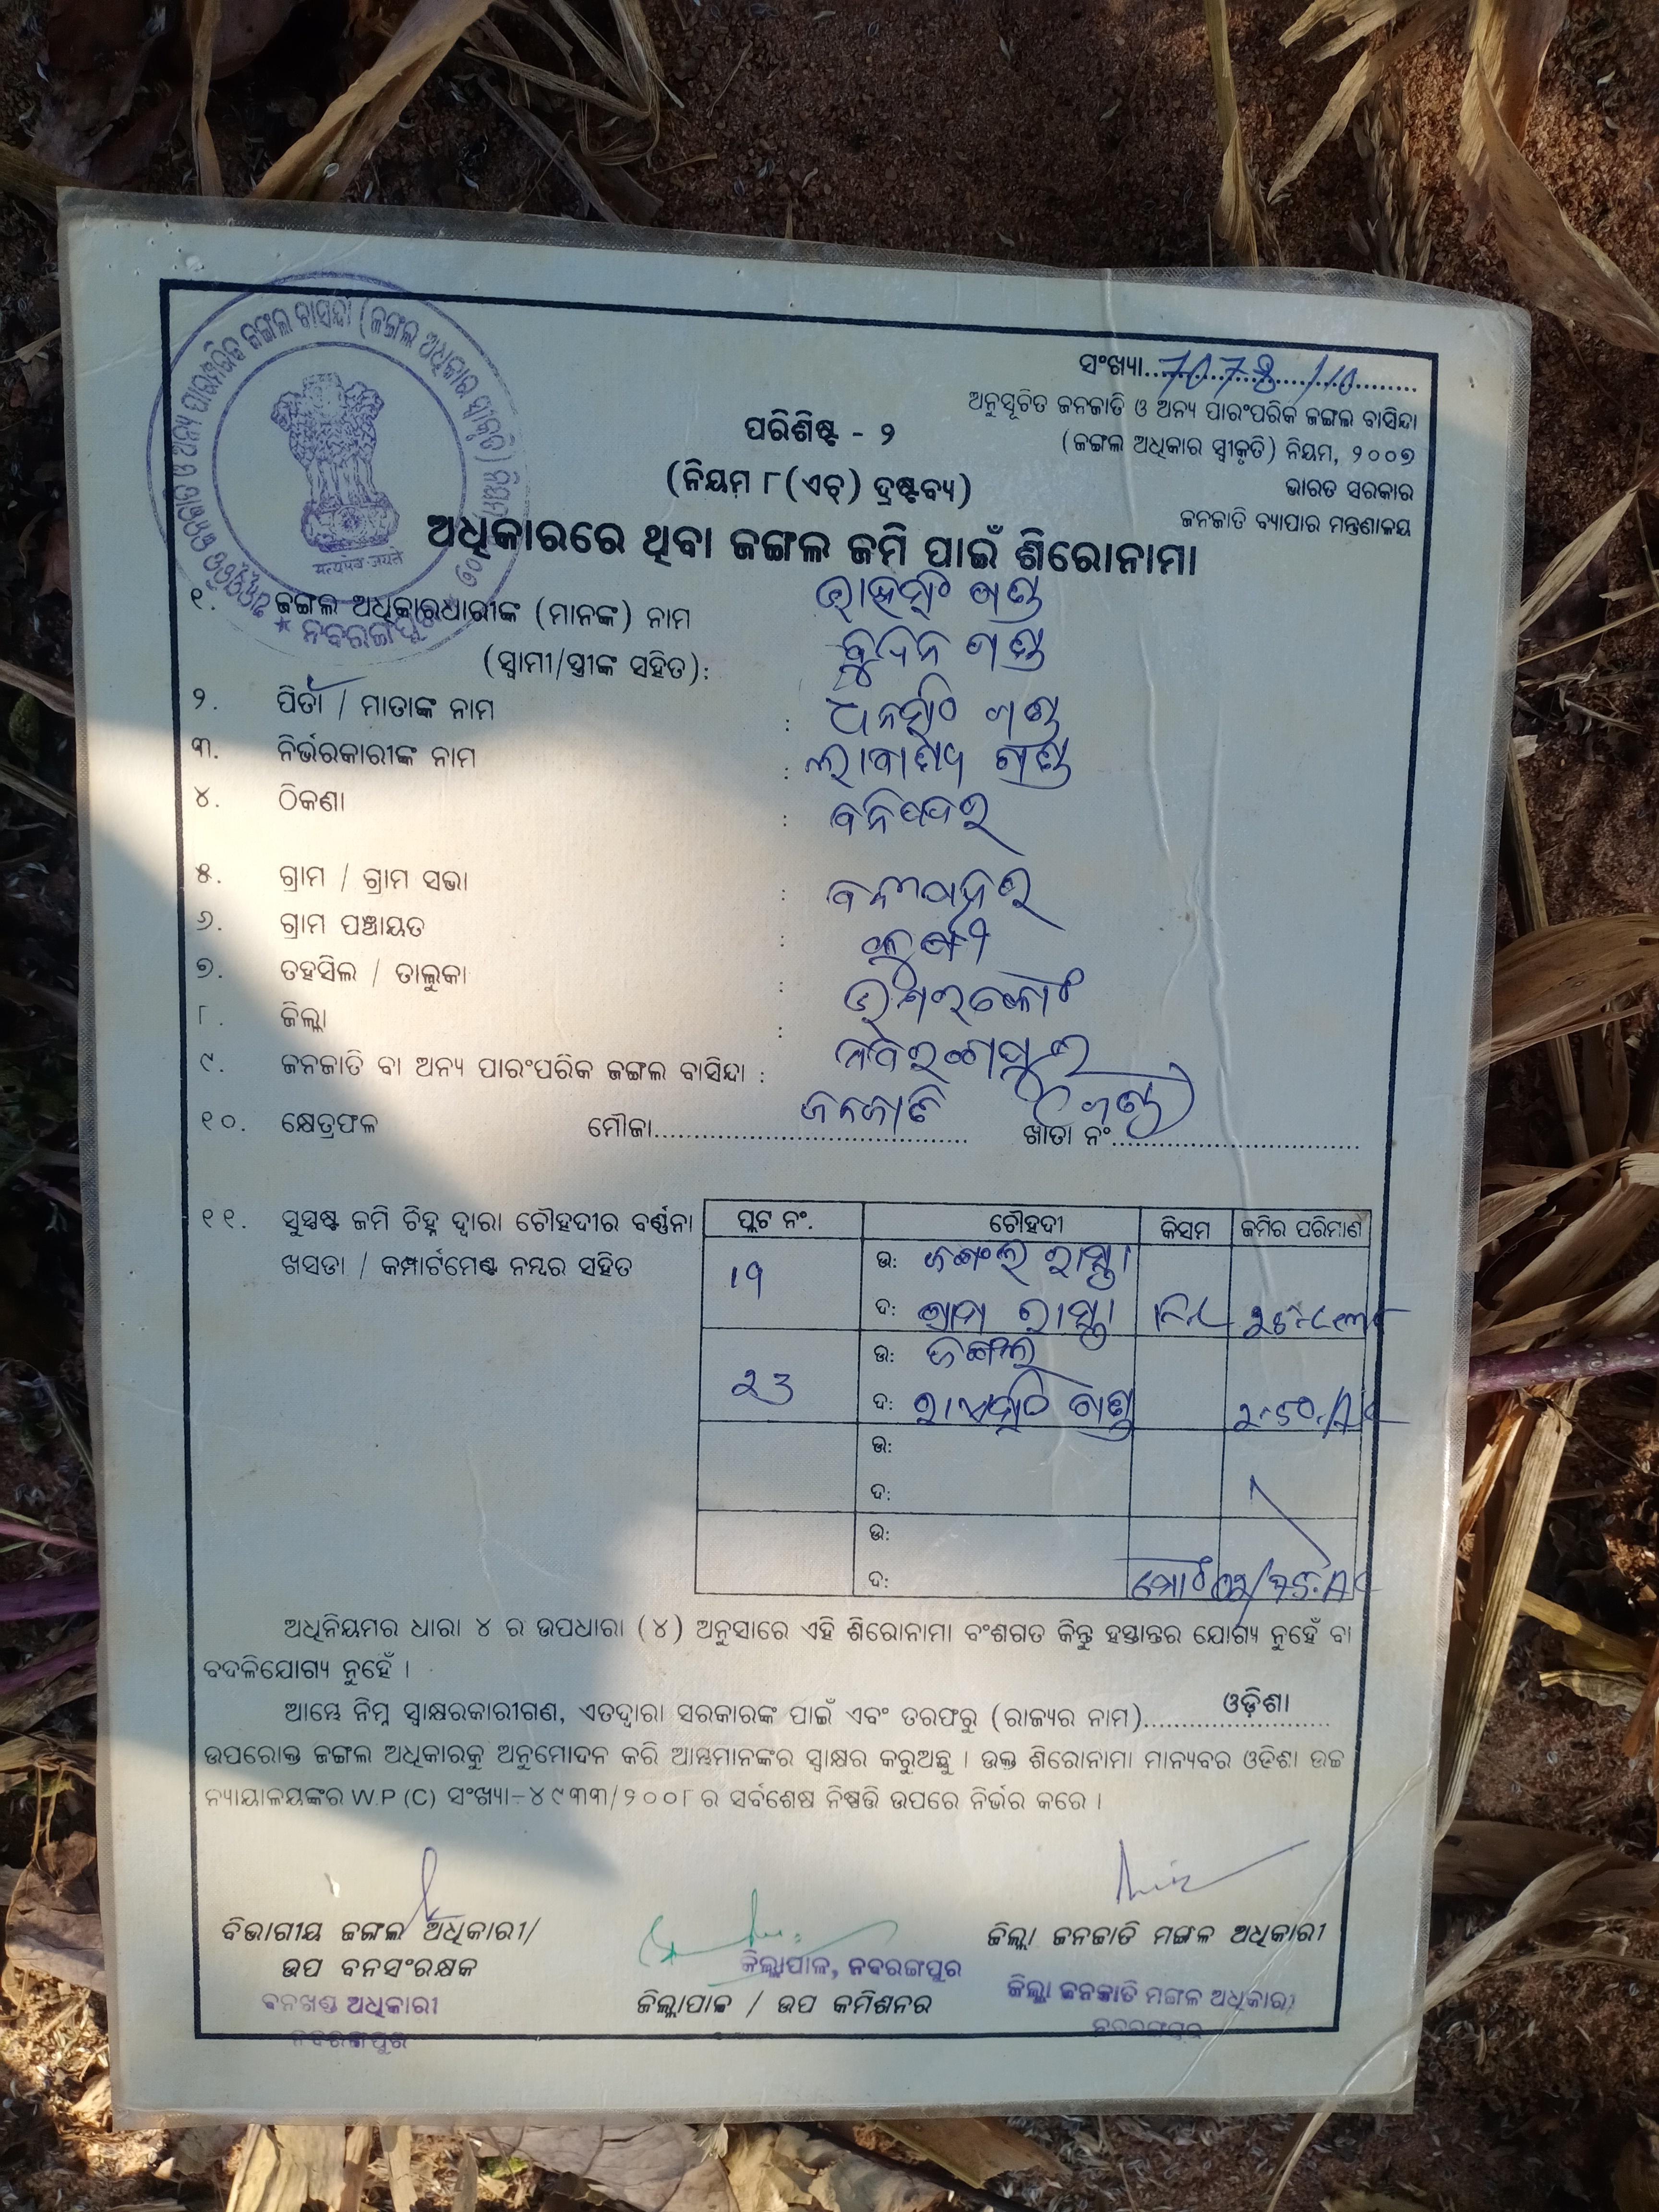 ସଂଖ୍ୟା 7078/10
ଅନୁସୂଚିତ ଜନଜାତି ଓ ଅନ୍ୟ ପାରଂପରିକ ଜଙ୍ଗଲ ବାସିନ୍ଦା
(ଜଙ୍ଗଲ ଅଧିକାର ସ୍ୱୀକୃତି) ନିୟମ, ୨୦୦୭
ଭାରତ ସରକାର
ଜନଜାତି ବ୍ୟାପାର ମନ୍ତ୍ରଣାଳୟ
ପରିଶିଷ୍ଟ - ୨
(ନିୟମ ୮(ଏଚ୍) ଦ୍ରଷ୍ଟବ୍ୟ)
ଅଧିକାରରେ ଥିବା ଜଙ୍ଗଲ ଜମି ପାଇଁ ଶିରୋନାମା
सत्यमेव जयते
୧. ଜଙ୍ଗଲ ଅଧିକାରଧାରୀଙ୍କ (ମାନଙ୍କ) ନାମ ଗଣ୍ଡ
(ସ୍ୱାମୀ/ସ୍ତ୍ରୀଙ୍କ ସହିତ): ବୁଦିନ ଗଣ୍ଡ
୨. ପିତା / ମାତାଙ୍କ ନାମ : ଗଣ୍ଡ
୩. ନିର୍ଭରକାରୀଙ୍କ ନାମ : ଗଣ୍ଡ
୪. ଠିକଣା :
୫. ଗ୍ରାମ / ଗ୍ରାମ ସଭା :
୬. ଗ୍ରାମ ପଞ୍ଚାୟତ :
୭. ତହସିଲ / ତାଲୁକା :
୮. ଜିଲ୍ଲା : ନବରଙ୍ଗପୁର
୯. ଜନଜାତି ବା ଅନ୍ୟ ପାରଂପରିକ ଜଙ୍ଗଲ ବାସିନ୍ଦା : ଜନଜାତି (ଗଣ୍ଡ)
୧୦. କ୍ଷେତ୍ରଫଳ ମୌଜା ଖାତା ନଂ
୧୧. ସୁସ୍ପଷ୍ଟ ଜମି ଚିହ୍ନ ଦ୍ୱାରା ଚୌହଦୀର ବର୍ଣ୍ଣନା
ଖସଡା / କମ୍ପାର୍ଟମେଣ୍ଟ ନମ୍ବର ସହିତ
ପ୍ଲଟ ନଂ. ଚୌହଦୀ କିସମ ଜମିର ପରିମାଣ
ଉ: ଜଙ୍ଗଲ ରାସ୍ତା
ଦ: ଗ୍ରାମ ରାସ୍ତା
ଉ: ଜଙ୍ଗଲ
୨୩
ଦ: ଗଣ୍ଡ
ଉ:
ଦ:
ଉ:
ଦ:
ଅଧିନିୟମର ଧାରା ୪ ର ଉପଧାରା (୪) ଅନୁସାରେ ଏହି ଶିରୋନାମା ବଂଶଗତ କିନ୍ତୁ ହସ୍ତାନ୍ତର ଯୋଗ୍ୟ ନୁହେଁ ବା
ବଦଳିଯୋଗ୍ୟ ନୁହେଁ ।
ଆମ୍ଭେ ନିମ୍ନ ସ୍ୱାକ୍ଷରକାରୀଗଣ, ଏତଦ୍ୱାରା ସରକାରଙ୍କ ପାଇଁ ଏବଂ ତରଫରୁ (ରାଜ୍ୟର ନାମ) ଓଡ଼ିଶା
ଉପରୋକ୍ତ ଜଙ୍ଗଲ ଅଧିକାରକୁ ଅନୁମୋଦନ କରି ଆମ୍ଭମାନଙ୍କର ସ୍ୱାକ୍ଷର କରୁଅଛୁ । ଉକ୍ତ ଶିରୋନାମା ମାନ୍ୟବର ଓଡିଶା ଉଚ୍ଚ
ନ୍ୟାୟାଳୟଙ୍କର W.P (C) ସଂଖ୍ୟା-୪୯୩୩/୨୦୦୮ ର ସର୍ବଶେଷ ନିଷ୍ପତ୍ତି ଉପରେ ନିର୍ଭର କରେ ।
ବିଭାଗୀୟ ଜଙ୍ଗଲ ଅଧିକାରୀ/
ଉପ ବନସଂରକ୍ଷକ
ବନଖଣ୍ଡ ଅଧିକାରୀ
ନବରଙ୍ଗପୁର
ଜିଲ୍ଲାପାଳ, ନବରଙ୍ଗପୁର
ଜିଲ୍ଲାପାଳ / ଉପ କମିଶନର
ଜିଲ୍ଲା ଜନଜାତି ମଙ୍ଗଳ ଅଧିକାରୀ
ଜିଲ୍ଲା ଜନଜାତି ମଙ୍ଗଳ ଅଧିକାରୀ
ନବରଙ୍ଗପୁର